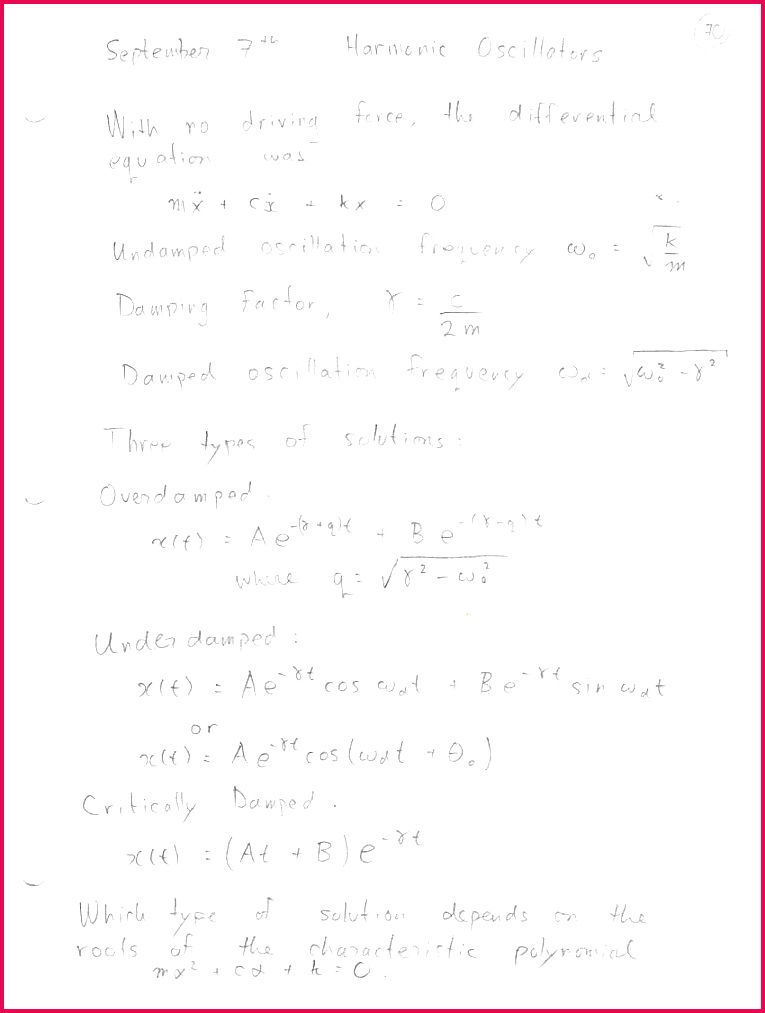 (70)
September 7th Harmonic Oscillators
With no driving force, the differential
equation was
mẍ + cẋ + kx = 0
Undamped oscillation frequency ω₀ = √(k/m)
Damping factor, γ = c/2m
Damped oscillation frequency ω_d = √(ω₀² - γ²)
Three types of solutions:
Overdamped.
x(t) = A e^-(γ+q)t + B e^-(γ-q)t
where q = √(γ² - ω₀²)
Underdamped:
x(t) = A e^-γt cos ω_d t + B e^-γt sin ω_d t
or
x(t) = A e^-γt cos(ω_d t + θ₀)
Critically Damped.
x(t) = (At + B) e^-γt
Which type of solution depends on the
roots of the characteristic polynomial
mα² + cα + k = 0.